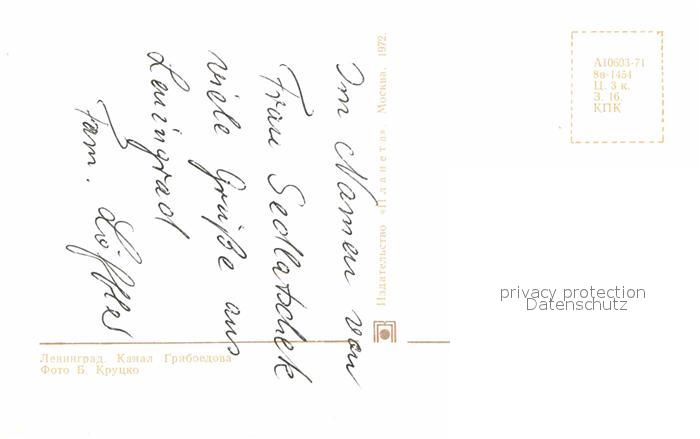 Im Namen von
Frau Sedlatschek
viele Grüße aus
Leningrad
Fam. Löffler
Издательство «Планета». Москва. 1972.
А10603-71
8в-1454
Ц. 3 к.
З. 16.
КПК
privacy protection
Datenschutz
Ленинград. Канал Грибоедова
Фото Б. Круцко